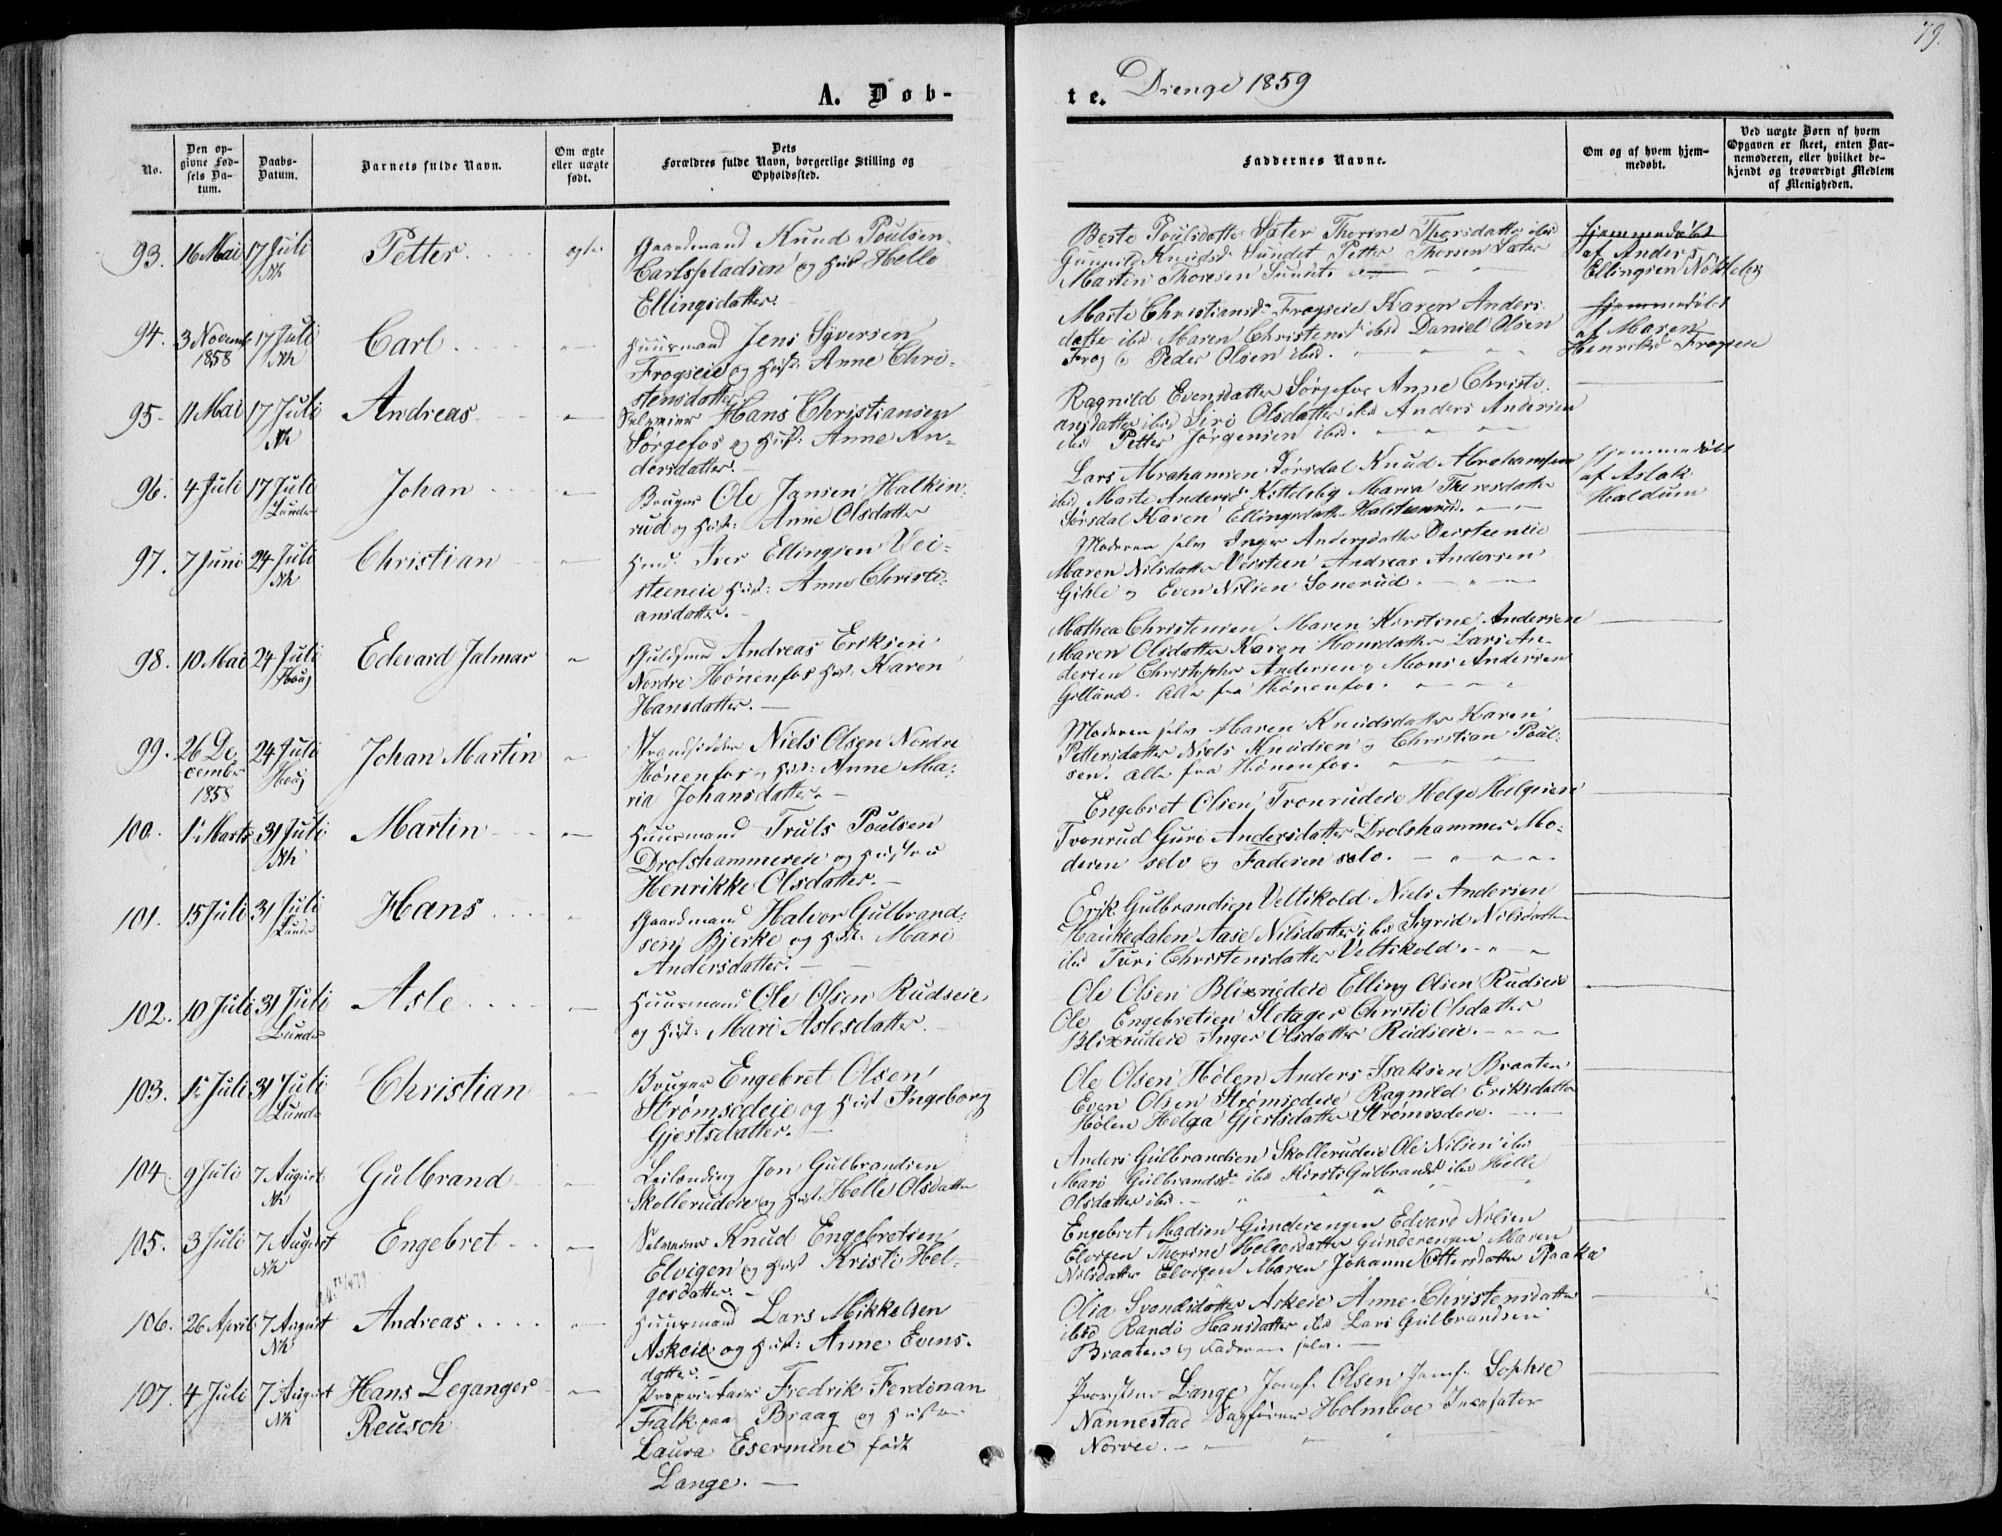 79.
A. Døb-
te. Drenge 1859
No.
Den op-
givne Fød-
sels Da-
tum.
Daabs-
Datum.
Barnets fulde Navn.
Om ægte
eller uægte
født.
Dets
Forældres fulde Navn, borgerlige Stilling og
Opholdssted.
Faddernes Navne.
Om og af hvem hjem-
medøbt.
Ved uægte Børn af hvem
Opgaven er skeet, enten Bar-
nemoderen, eller hvilket be-
kjendt og troværdigt Medlem
af Menigheden.
93. 16 Mai 17 Juli Nk Petter ægte
Gaardmand Knud Poulsen
Carlspladsen og Hust Helle
Ellingsdatter.
Berte Poulsdatter Sater Thorine Thorsdatter ibd
Gunnild Knudsd. Sundet Petter Thorsen Sater
Martin Thoresen Sundet
Hjemmedøbt
af Anders
Ellingsen Nøkleby
94. 3 Novemb 1858 17 Juli Nk Carl —
Huusmand Jens Syversen
Frogseie og Hust: Anne Chri-
stensdatter
Marte Christiansd. Frogseie Karen Anders
datter ibd Maren Christensd. ibd Daniel Olsen
Frog og Peder Olsen ibd.
Hjemmedøbt
af Maren
Henriksd Frogseie
95. 11 Mai 17 Juli Nk Andreas —
Selveier Hans Christiansen
Sørgefos og Hust: Anne An-
dersdatter.
Ragnild Evensdatter Sørgefos Anne Christi
ansdatter ibd Siri Olsdatter ibd Anders Andersen
ibd Petter Jørgensen ibd.
96. 4 Juli 17 Juli Lunder Johan —
Bruger Ole Jansen Halkin
rud og Hust: Anne Olsdatter
Lars Abrahamsen Sørsdal Knud Abrahamsen
ibd Marte Andersd Kittelsby Maria Theresdatter
Sørsdal Karen Ellingsdatter
Hjemmedøbt
af Aslak
Haldum
97. 7 Juni 24 Juli Nk Christian —
Hmd. Iver Ellingsen Vei-
steeneie Hust: Anne Christi-
ansdatter.
Moderen selv Inger Andersdatter Veisteeneie
Maren Nilsdatter Veisteen Andreas Andersen
Gihle og Even Nilsen Sonerud.
98. 10 Mai 24 Juli Houg Edevard Jalmar —
Guldsmed Andreas Eriksen
Nordre Hønenfos Hust: Karen
Hansdatter.
Mathea Christensen Maren Kirstine Andersen
Maren Olsdatter Karen Hansdatter Lars An-
dersen Christopher Andersen og Mons Andersen
Gulland. Alle fra Hønenfos.
99. 26 De cember 1858 24 Juli Houg Johan Martin —
Strandsidder Niels Olsen Nordre
Hønenfos og Hust: Anne Ma-
ria Johansdatter
Moderen selv Maren Knudsdatter Karen
Pettersdatter Niels Knudsen og Christian Poul-
sen. Alle fra Hønenfos.
100. 1ste Marts 31 Juli Nk Martin —
Huusmand Truls Poulsen
Drolshammereie og Hustru
Henrikke Olsdatter.
Engebret Olsen Tronrudeie Helge Helgesen
Tronrud Guri Andersdatter Drolshammer Mo-
deren selv og Faderen selv.
101. 15 Juli 31 Juli Lunder Hans —
Gaardmand Halvor Gulbrand-
sen Bjerke og Hust: Mari
Andersdatter.
Erik Gulbrandsen Veltikold Niels Andersen
Haukedalen Aase Nilsdatter ibd Sigrid Nilsdatter
ibd Turi Christensdatter Veltikold.
102. 10 Juli 31 Juli Lunder Asle —
Huusmand Ole Olsen Rudseie
og Hust: Mari Aslesdatter.
Ole Olsen Blixrudeie Elling Olsen Rudseie
Ole Engebretsen Sletager Christi Olsdatter
Blixrudeie Inger Olsdatter Rudseie.
103. 1ste Juli 31 Juli Lunder Christian —
Bruger Engebret Olsen
Strømsodeie og Hust Ingeborg
Gjertsdatter.
Ole Olsen Hølen Anders Isaksen Braaten
Even Olsen Strømsodeie Ragnild Eriksdatter
Hølen Helga Gjertsdatter Strømsodeie.
104. 9 Juli 7 August Nk Gulbrand —
Leilænding Jon Gulbrandsen
Skollerudeie og Hust: Helle Olsdatter
Anders Gulbrandsen Skollerudeie Ole Nilsen ibd
Mari Gulbrandsd. ibd Kirsti Gulbrandsd ibd Helle
Olsdatter ibd.
105. 3 Juli 7 August Nk Engebret —
Selveier Knud Engebretsen
Elvigen og Hust Kristi Hel-
gesdatter.
Engebret Madsen Gunderengen Edvard Nilsen
Elvigen Thorine Helgesdatter Gunderengen Maren
Nilsdatter Elvigen Maren Johanne Ottersdatter Raaka
106. 26 April 7 August Nk Andreas —
Huusmand Lars Mikkelsen
Askeie og Hust: Anne Evens-
datter.
Olia Svendsdatter Askeie Anne Christensdatter
ibd Randi Hansdatter ibd Lars Gulbrandsen
Braaten og Faderen selv.
107. 4 Juli 7 August Nk Hans Leganger
Reusch —
Proprietair Fredrik Ferdinan
Falk paa Braag og Hustru
Laura Esermine født
Lange.
Lange, Jomf. Olsen, Jomf. Sophie
Nannestad Sagfører Holmboe
Norvei.